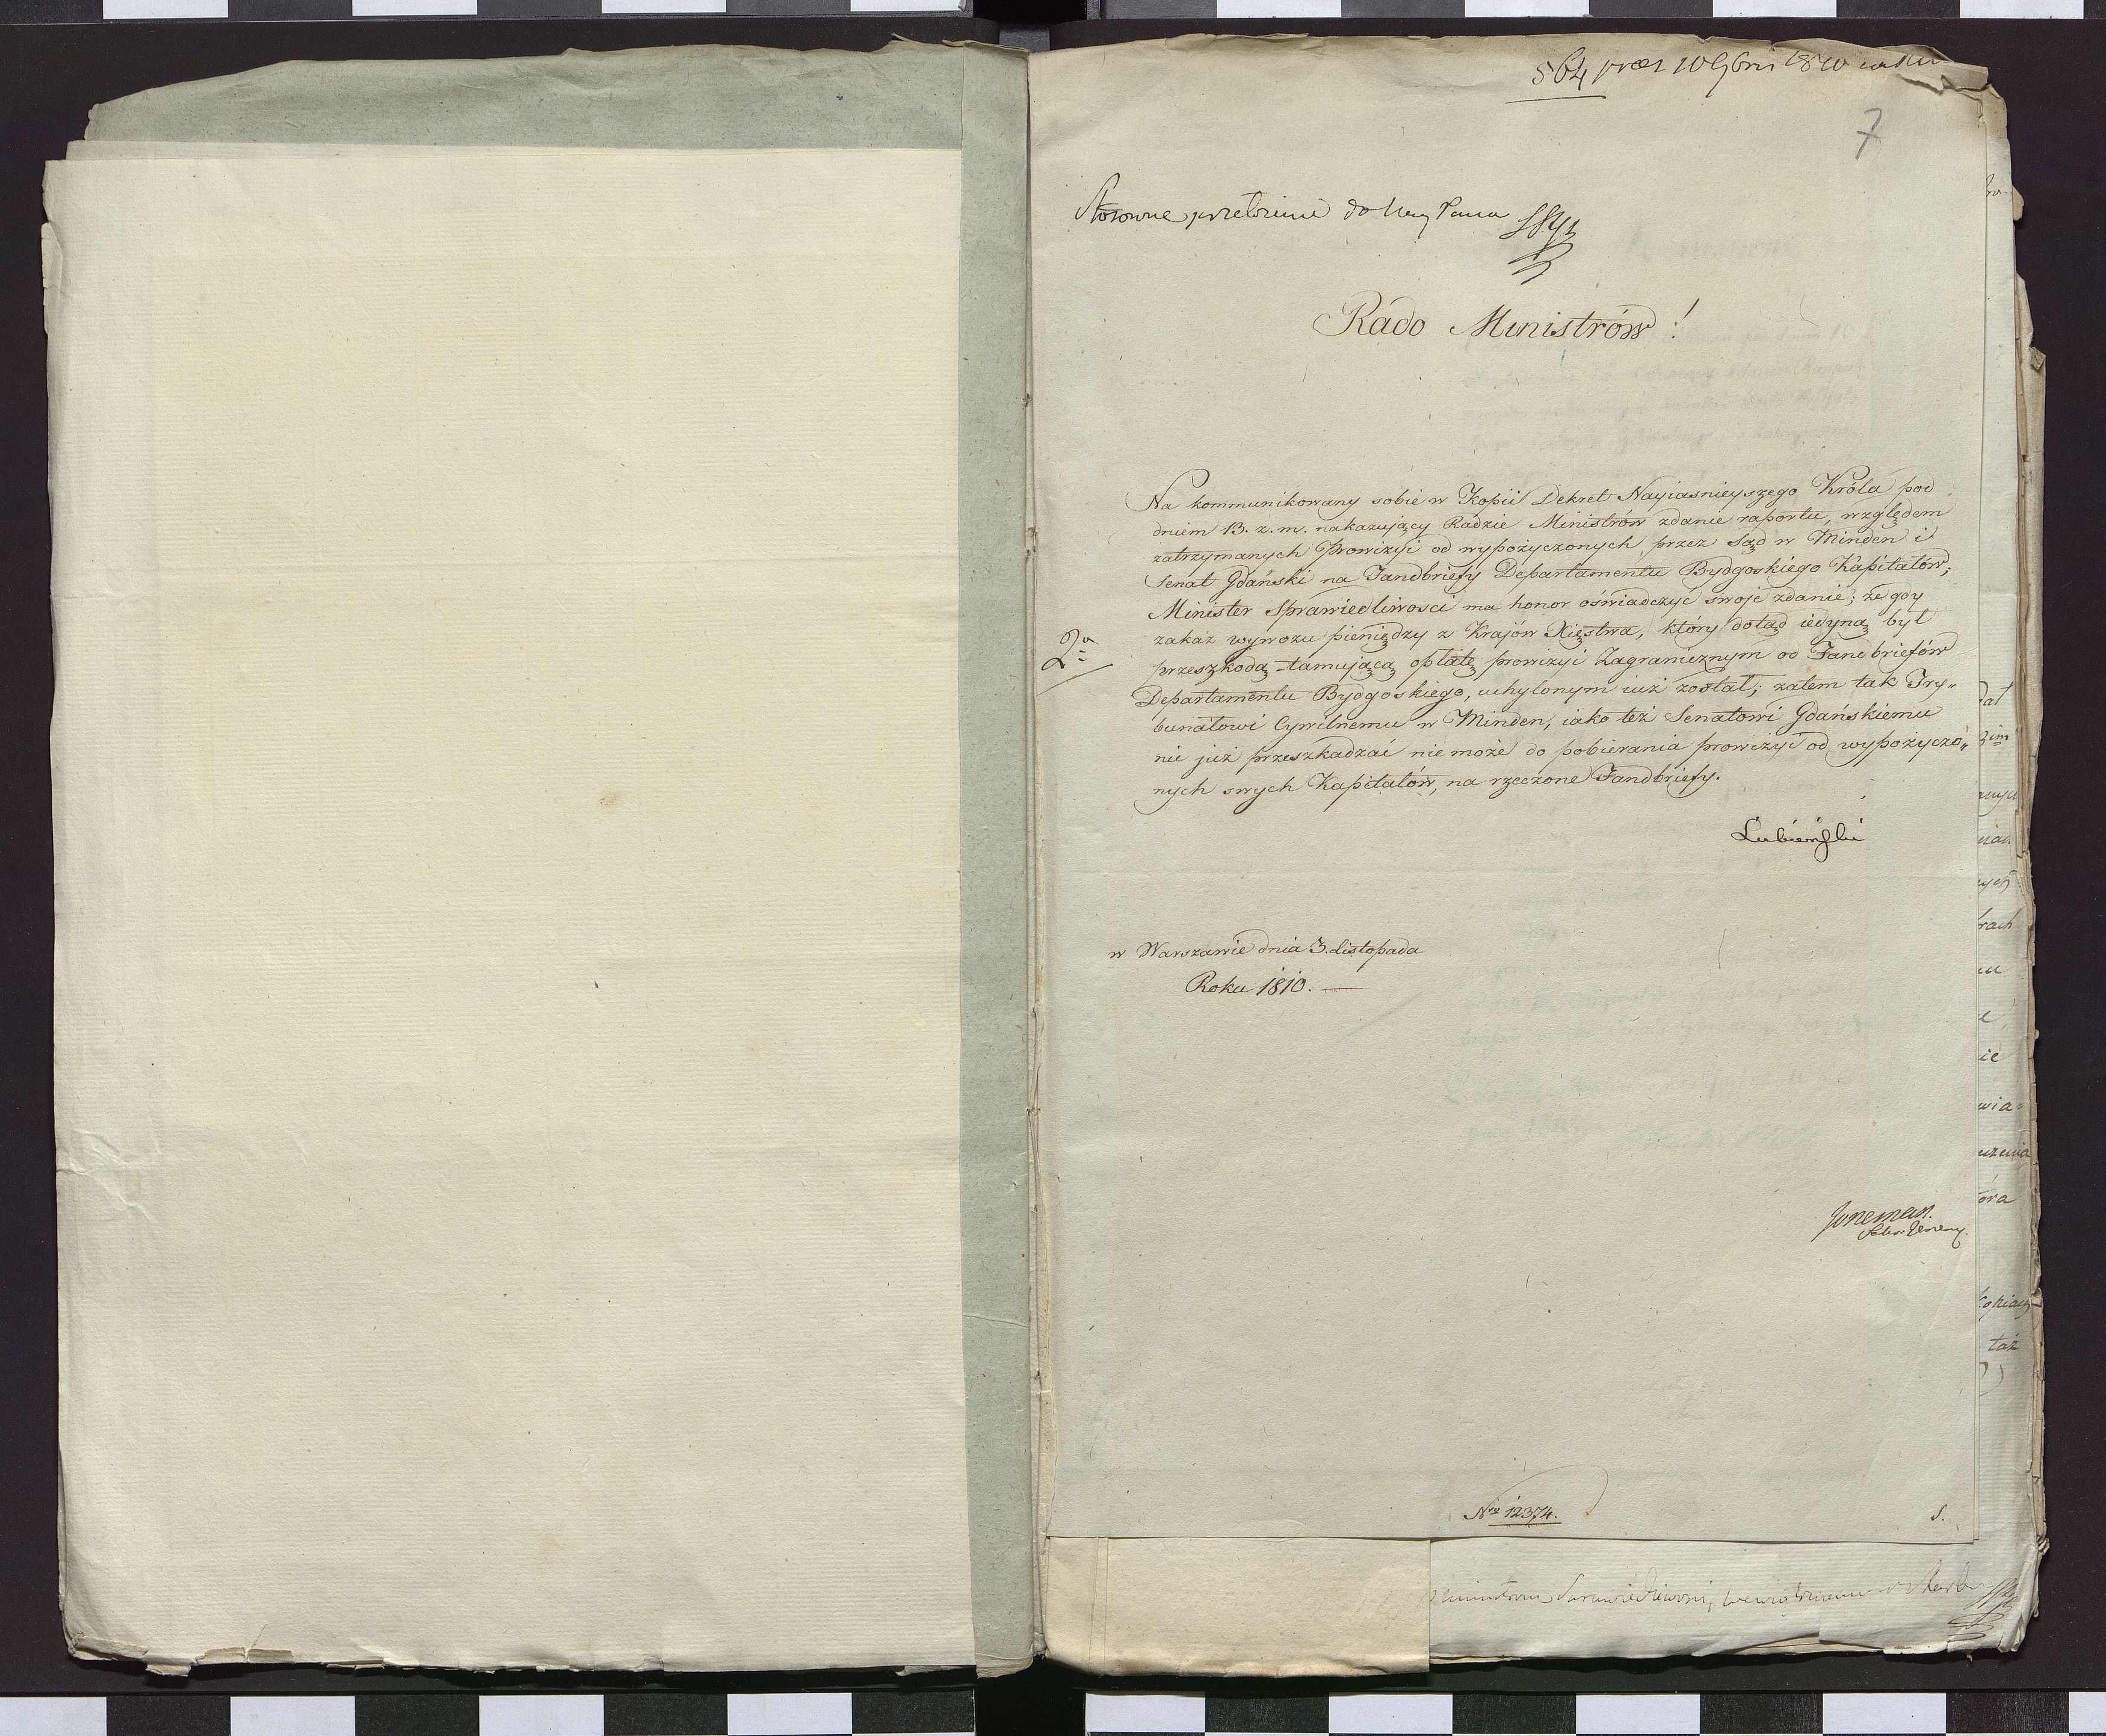 564 præs 10 9bris 1810
7
Stosowne przełożenie do Nay Pana
Rado Ministrów!
Na kommunikowany sobie w Kopii Dekret Nayiasnieyszego Króla pod
dniem 13. z. m. nakazujący Radzie Ministrów zdanie raportu, względem
zatrzymanych Prowizyi od wypożyczonych przez Sąd w Minden i
Senat Gdański na Fandbriefy Departamentu Bydgoskiego Kapitałów;
Minister Sprawiedliwosci ma honor oświadczyć swoje zdanie; że gdy
zakaz wywozu pieniędzy z Krajów Xięstwa, który dotąd iedyną był
2a
przeszkodą tamującą opłatę prowizyi Zagranicznym od Fandbriefów
Departamentu Bydgoskiego, uchylonym iuż został; zatem tak Try„
bunałowi Cywilnemu w Minden, iako też Senatowi Gdańskiemu
nic już przeszkadzać nie może do pobierania prowizyi od wypożyczo„
nych swych Kapitałów, na rzeczone Fandbriefy.
Lubieński
w Warszawie dnia 3. Listopada
Roku 1810. —
Joneman.
Sekr: Generny.
Nro 12374.
S.